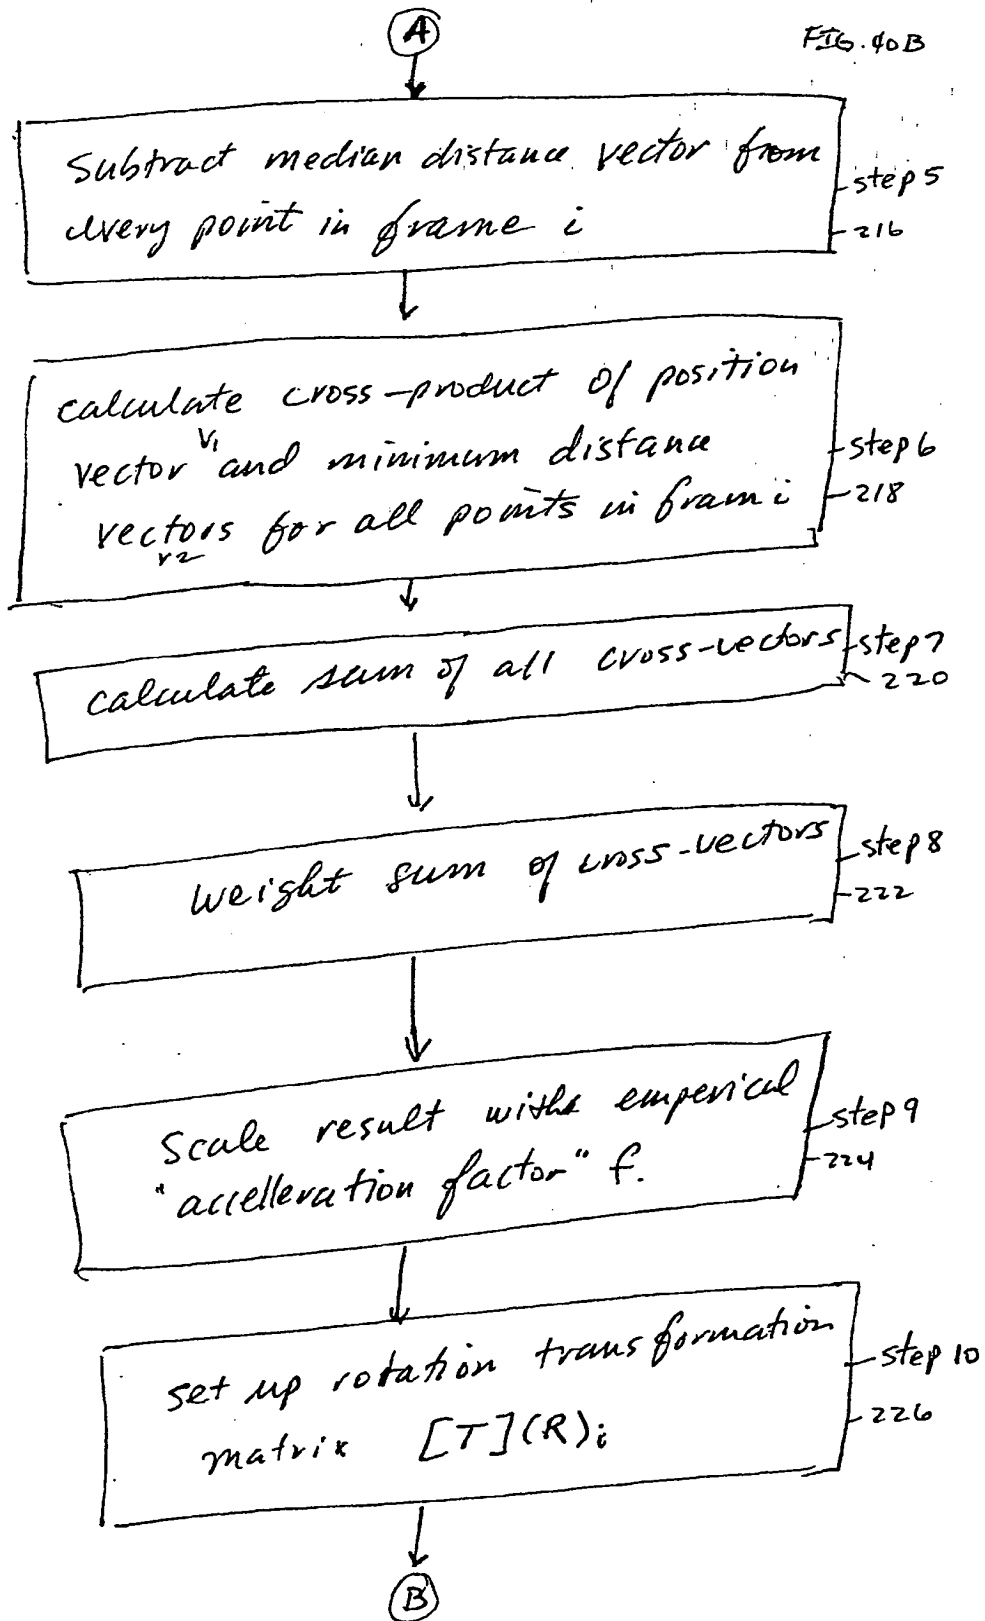 A
FIG. 40B
Subtract median distance vector from
every point in frame i
step 5
216
calculate cross-product of position
vector V1 and minimum distance
vectors v2 for all points in fram i
step 6
218
calculate sum of all cross-vectors
step 7
220
weight sum of cross-vectors
step 8
222
Scale result with a emperical
"accelleration factor" f.
step 9
224
set up rotation transformation
matrix [T](R)i
step 10
226
B